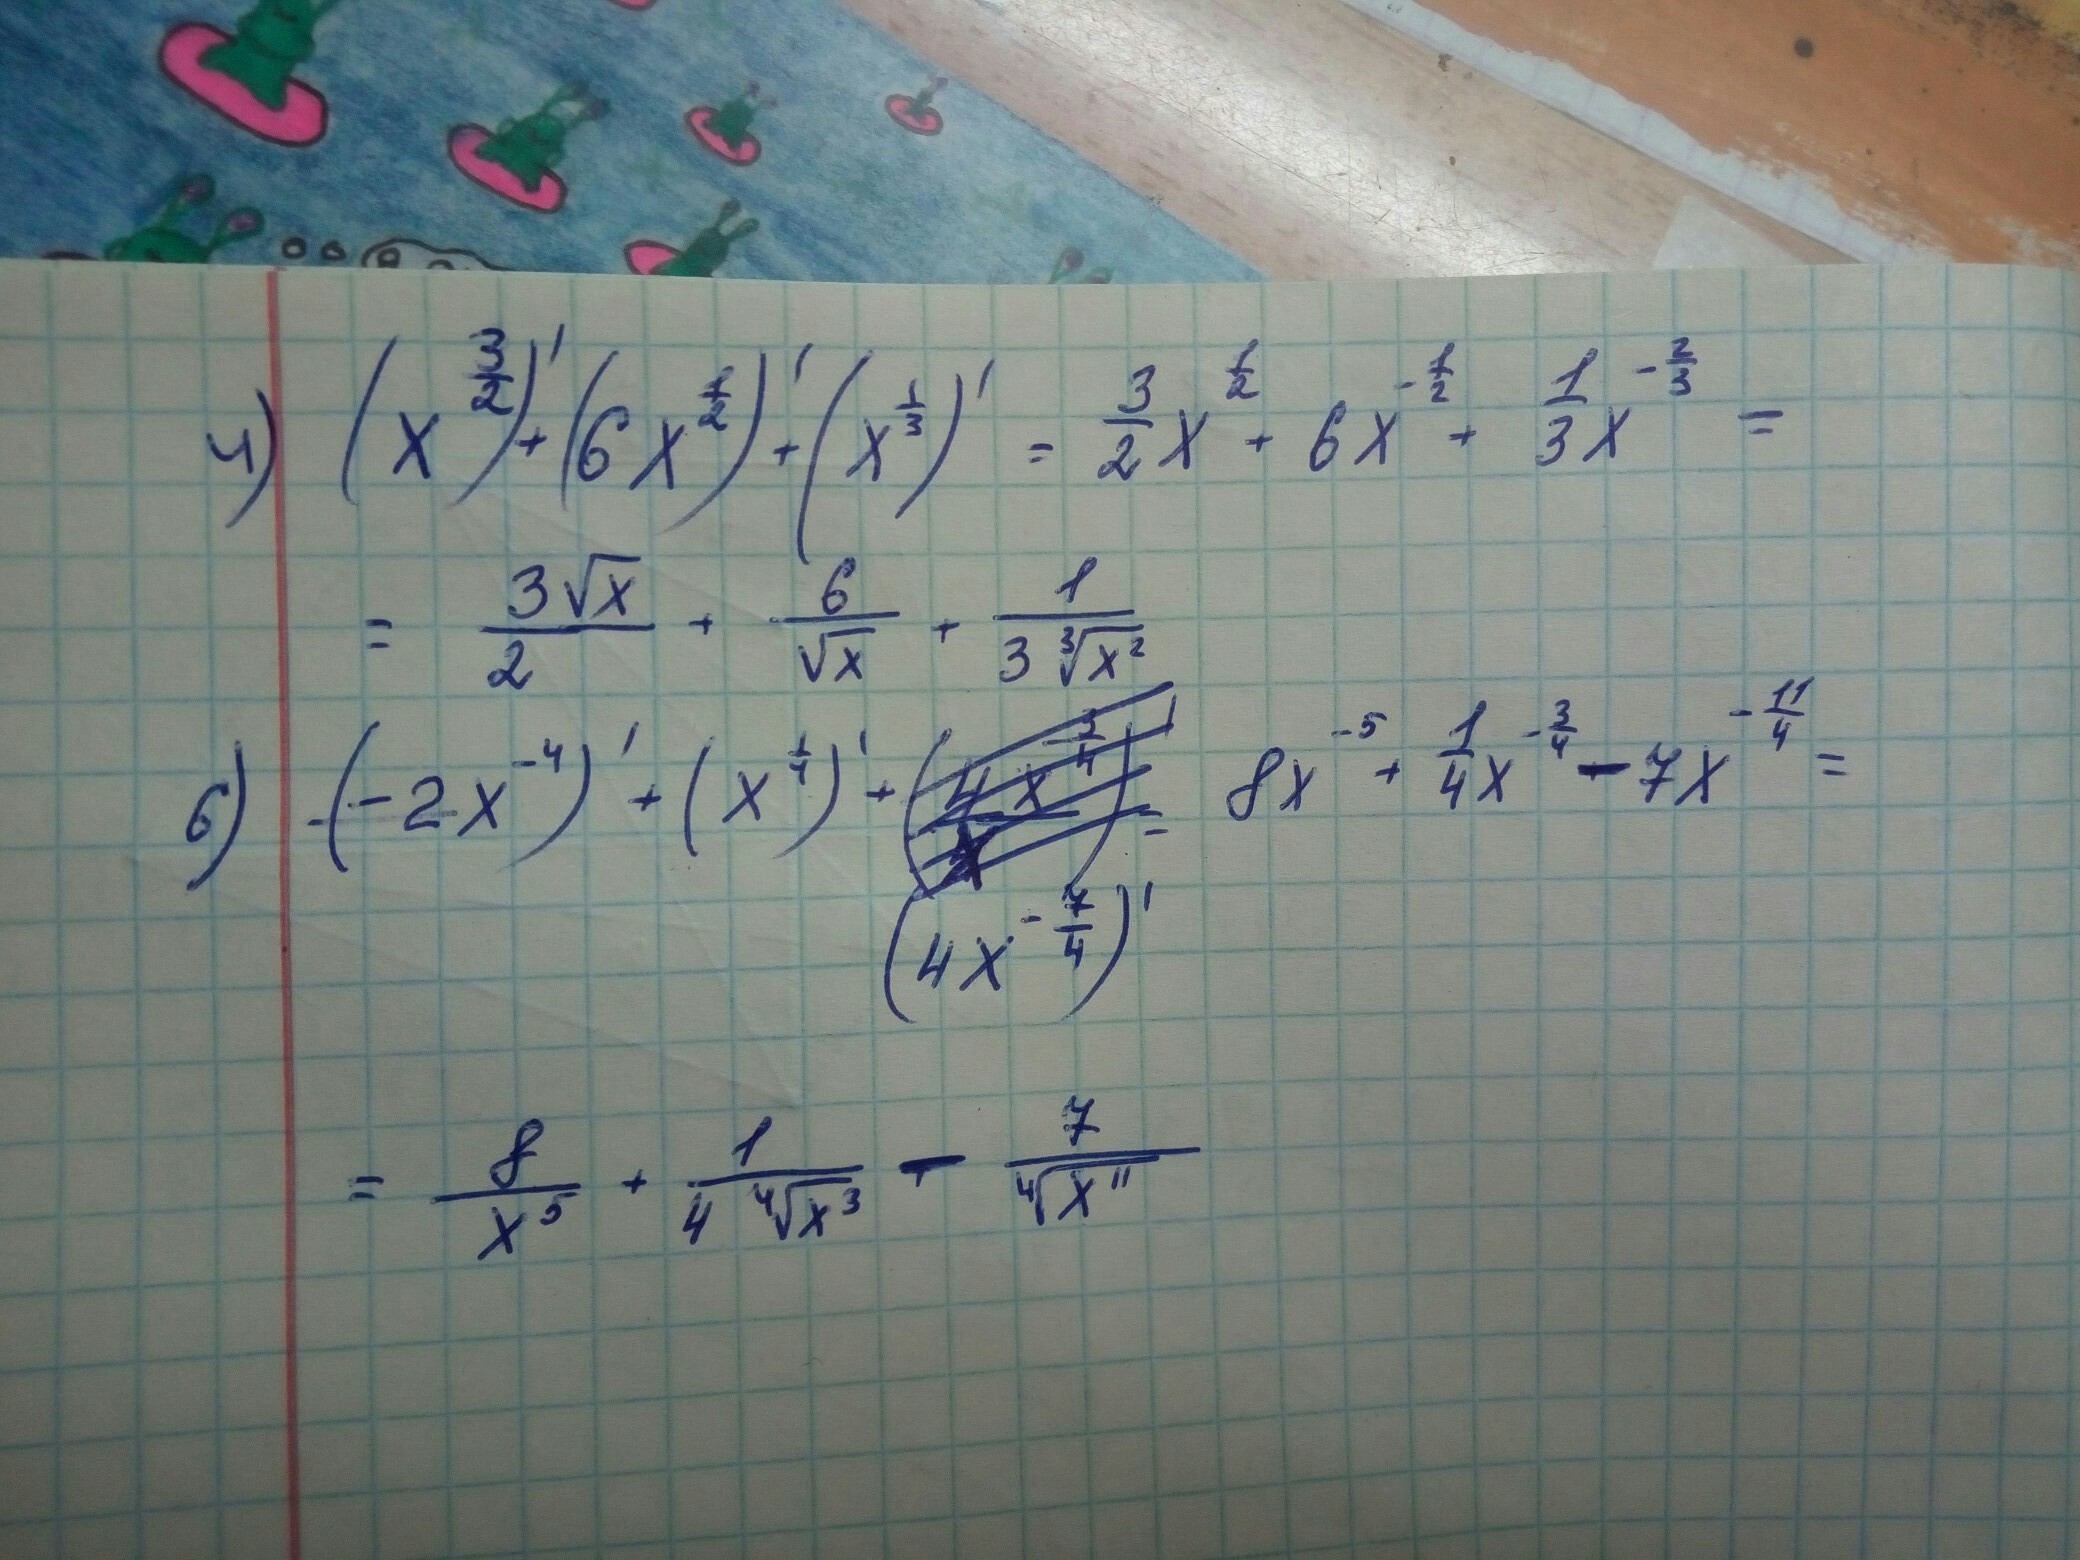 4) (x^{3/2})' + (6x^{1/2})' + (x^{1/3})' = 3/2 x^{1/2} + 6x^{-1/2} + 1/3 x^{-2/3} =
= 3√x/2 + 6/√x + 1/(3∛x²)
6) -(-2x^{-4})' + (x^{1/4})' + = 8x^{-5} + 1/4 x^{-3/4} - 7x^{-11/4} =
(4x^{-7/4})'
= 8/x⁵ + 1/(4 ∜x³) - 7/∜x¹¹